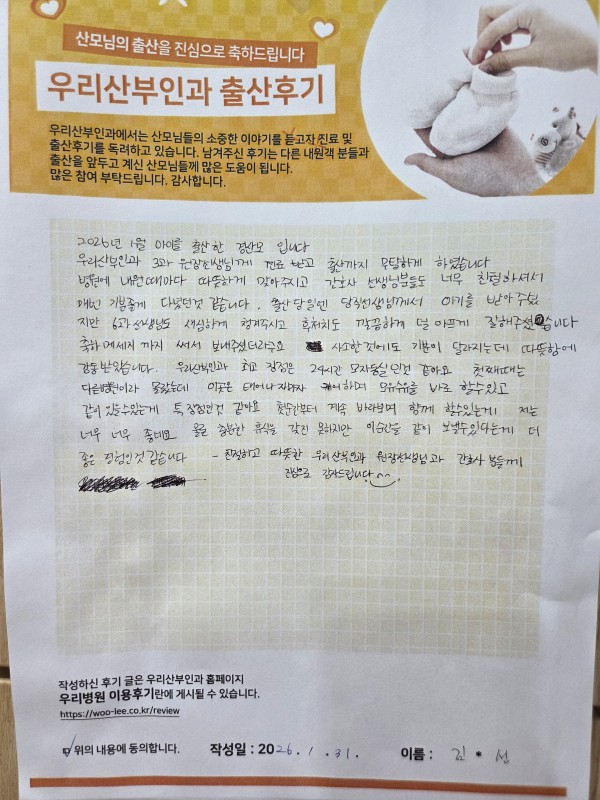 산모님의 출산을 진심으로 축하드립니다
우리산부인과 출산후기
우리산부인과에서는 산모님들의 소중한 이야기를 듣고자 진료 및
출산후기를 독려하고 있습니다. 남겨주신 후기는 다른 내원객 분들과
출산을 앞두고 계신 산모님들께 많은 도움이 됩니다.
많은 참여 부탁드립니다. 감사합니다.
2026년 1월 아이를 출산한 경산모 입니다
우리산부인과 3과 원장선생님께 진료 받고 출산까지 무탈하게 하였습니다
병원에 내원때마다 따뜻하게 맞아주시고 간호사 선생님분들도 너무 친절하셔서
매번 기분좋게 다녔던것 같습니다. 출산당일엔 당직선생님께서 아기를 받아주셨
지만 6과선생님도 세심하게 챙겨주시고 후처치도 꼼꼼하게 덜 아프게 잘해주셨습니다
축하메세지 까지 써서 보내주셨더라구요 사소한것에도 기분이 달라지는데 따뜻함에
감동받았습니다. 우리산부인과 최고 장점은 24시간 모자동실인것 같아요 첫째때는
다른병원이라 몰랐는데 이곳은 태어나자마자 케어하며 모유수유를 바로 할수있고
같이 있을수있는게 특장점인것 같아요 첫순간부터 계속 바라보며 함께 할수있는게 저는
너무 너무 좋네요 물론 충분한 휴식을 갖진 못하지만 이순간을 같이 보낼수있다는게 더
좋은 경험인것 같습니다 - 친절하고 따뜻한 우리산부인과 원장선생님과 간호사 분들께
진심으로 감사드립니다^^
작성하신 후기 글은 우리산부인과 홈페이지
우리병원 이용후기란에 게시될 수 있습니다.
https://woo-lee.co.kr/review
위의 내용에 동의합니다. 작성일 : 2026. 1. 31. 이름 : 김 * 선